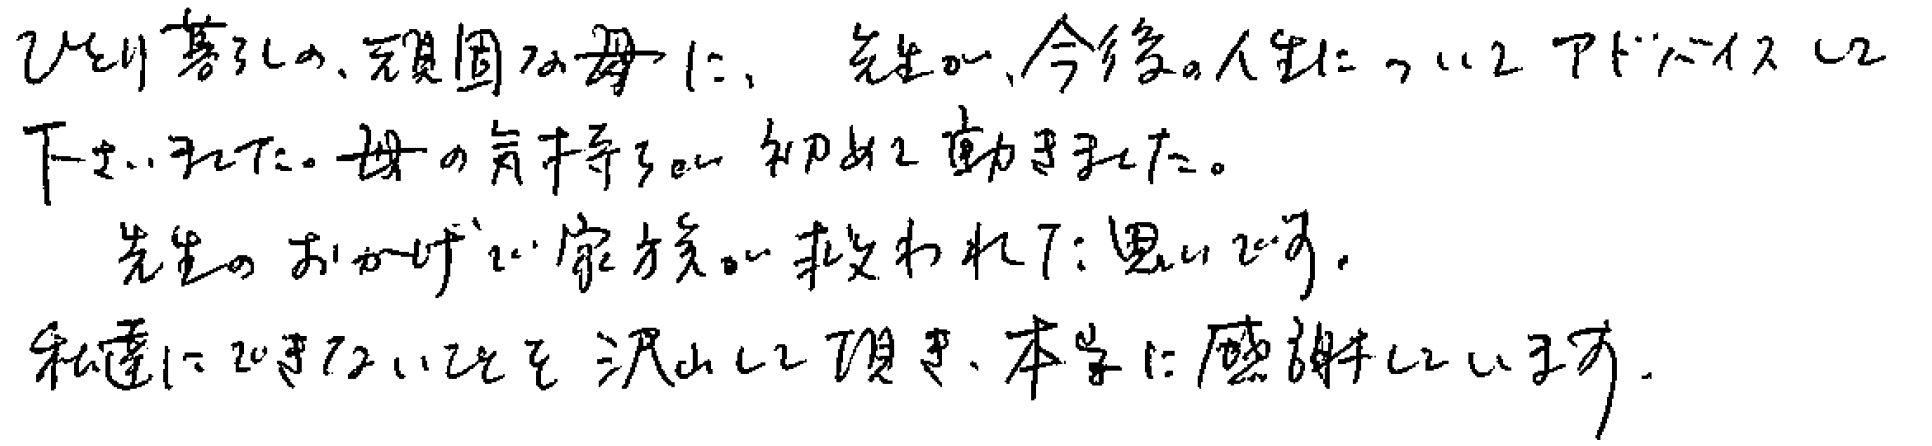 ひとり暮らしの、頑固な母に、先生が、今後の人生についてアドバイスして
下さいました。母の気持ちが初めて動きました。
先生のおかげで家族が救われた思いです。
私達にできないことを沢山して頂き、本当に感謝しています.